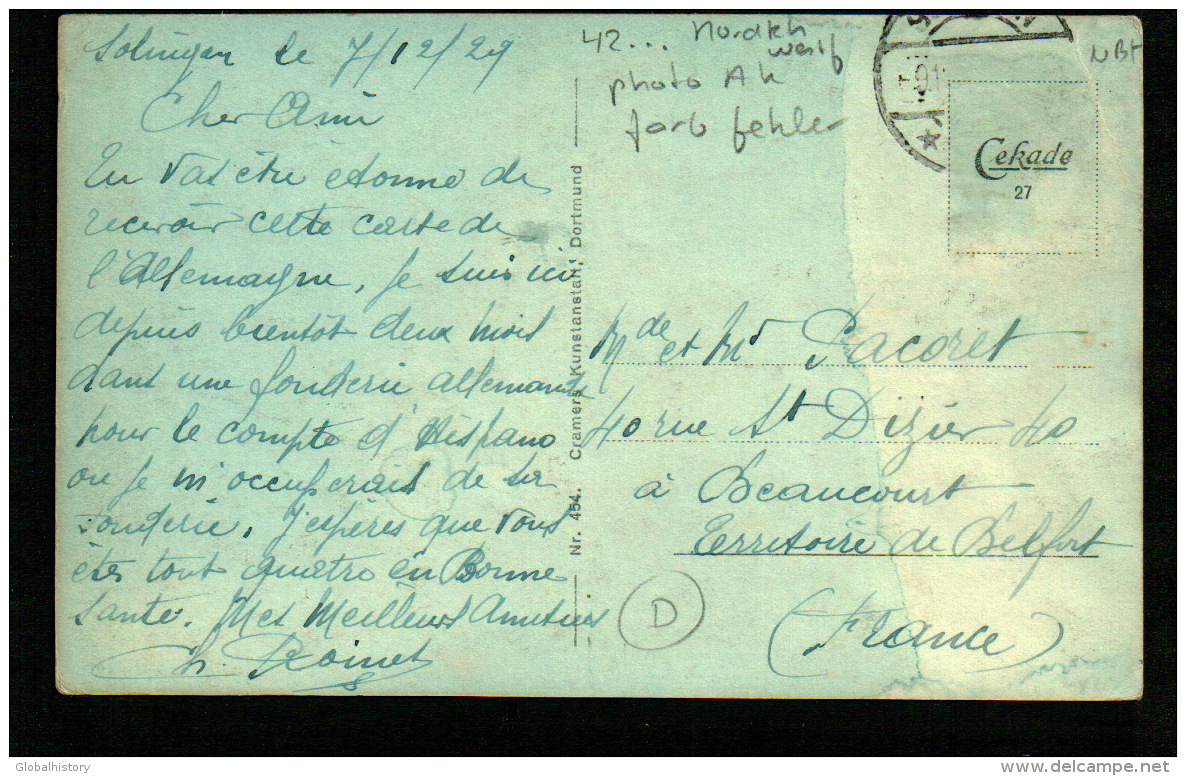 Solingen le 7/12/29
Cher Ami
Tu vas être étonné de
recevoir cette carte de
l'Allemagne, je suis ici
depuis bientôt deux mois
dans une fonderie allemande
pour le compte d'Hispano
ou je m'occuperais de sa
fonderie. J'espères que vous
êtes tout quatre en Bonne
Santé. Mes Meilleurs Amitiés
Ch.
Nr. 454. Cramers Kunstanstalt, Dortmund
42... Nordrh
westf
photo AK
farb fehler
NBT
Cekade
27
Mde et Mr Pacoret
40 rue St Dizier 40
à Beaucourt
Territoire de Belfort
(France)
D
Globalhistory
delcampe.net